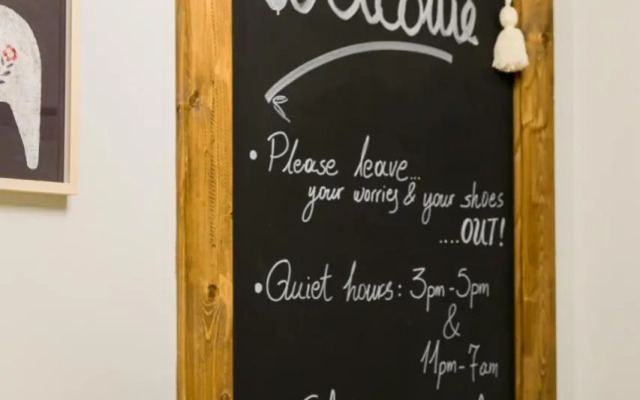 Welcome
• Please leave...
your worries & your shoes
....OUT!
• Quiet hours: 3pm-5pm
&
11pm-7am